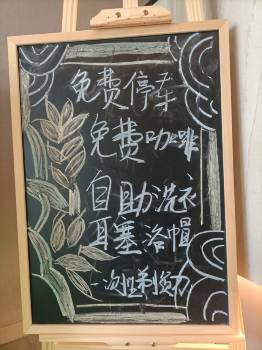 免费停车
免费咖啡
自助洗衣
耳塞浴帽
一次性剃须刀